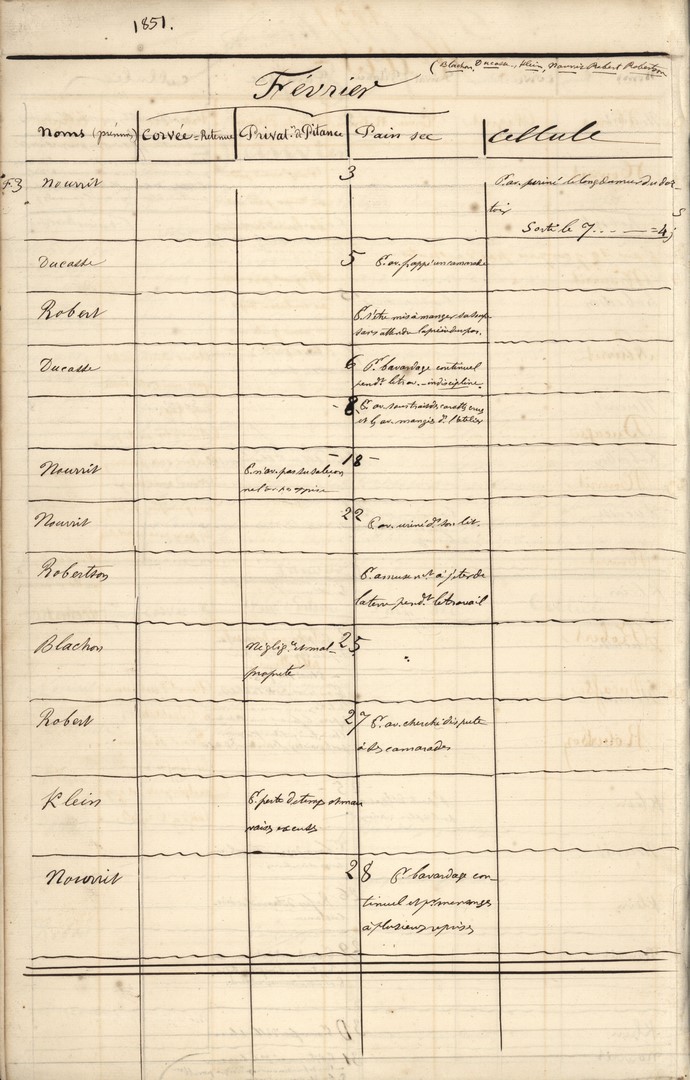 1851.
(Blachon, Ducasse, Klein, Nourrit Robert Robertson
Février
Noms (prénoms) Corvée=Retenue Privat.n de Pitance Pain sec Cellule
F. 3 Nourrit 3 P. av. uriné le long du mur du dor-
toir
Sorti le 7 . . . — = 4 j
Ducasse 5 P. av. frappé un camarade
Robert P. s'être mis à manger sa soupe
sans attendre la prière
Ducasse 6 Pr. bavardage continuel
pendt le trav. — indiscipline.
- 8 P. av. soustrait des crus
et les av. mangés ds. l'atelier
Nourrit - 18 - P. n'av. pas su sa leçon
ne l'av. pas apprise
Nourrit 22 P. av. uriné ds. son lit.
Robertson P. amusemt. à jeter de
la terre pendt. le travail
Blachon Néglig.ce et mal- 25
propreté
Robert 27 P. av. cherché dispute
à ses camarades
Klein P. perte de temps et mau
vaises excuses
Nourrit 28 Pr. bavardage con
tinuel et pr.
à plusieurs reprises